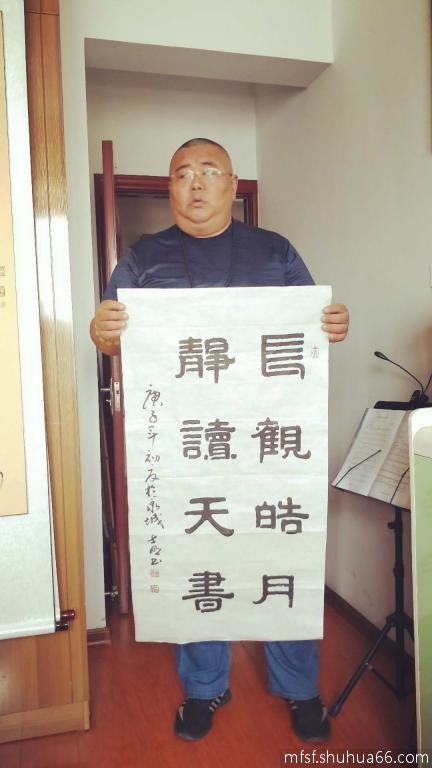 長觀皓月
靜讀天書
庚子年初夏於泉城
mfsf.shuhua66.com